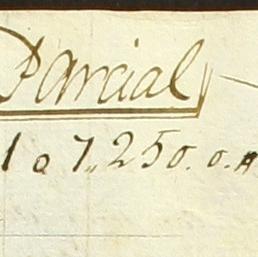 Parcial
1 a 7,, 250. 0.